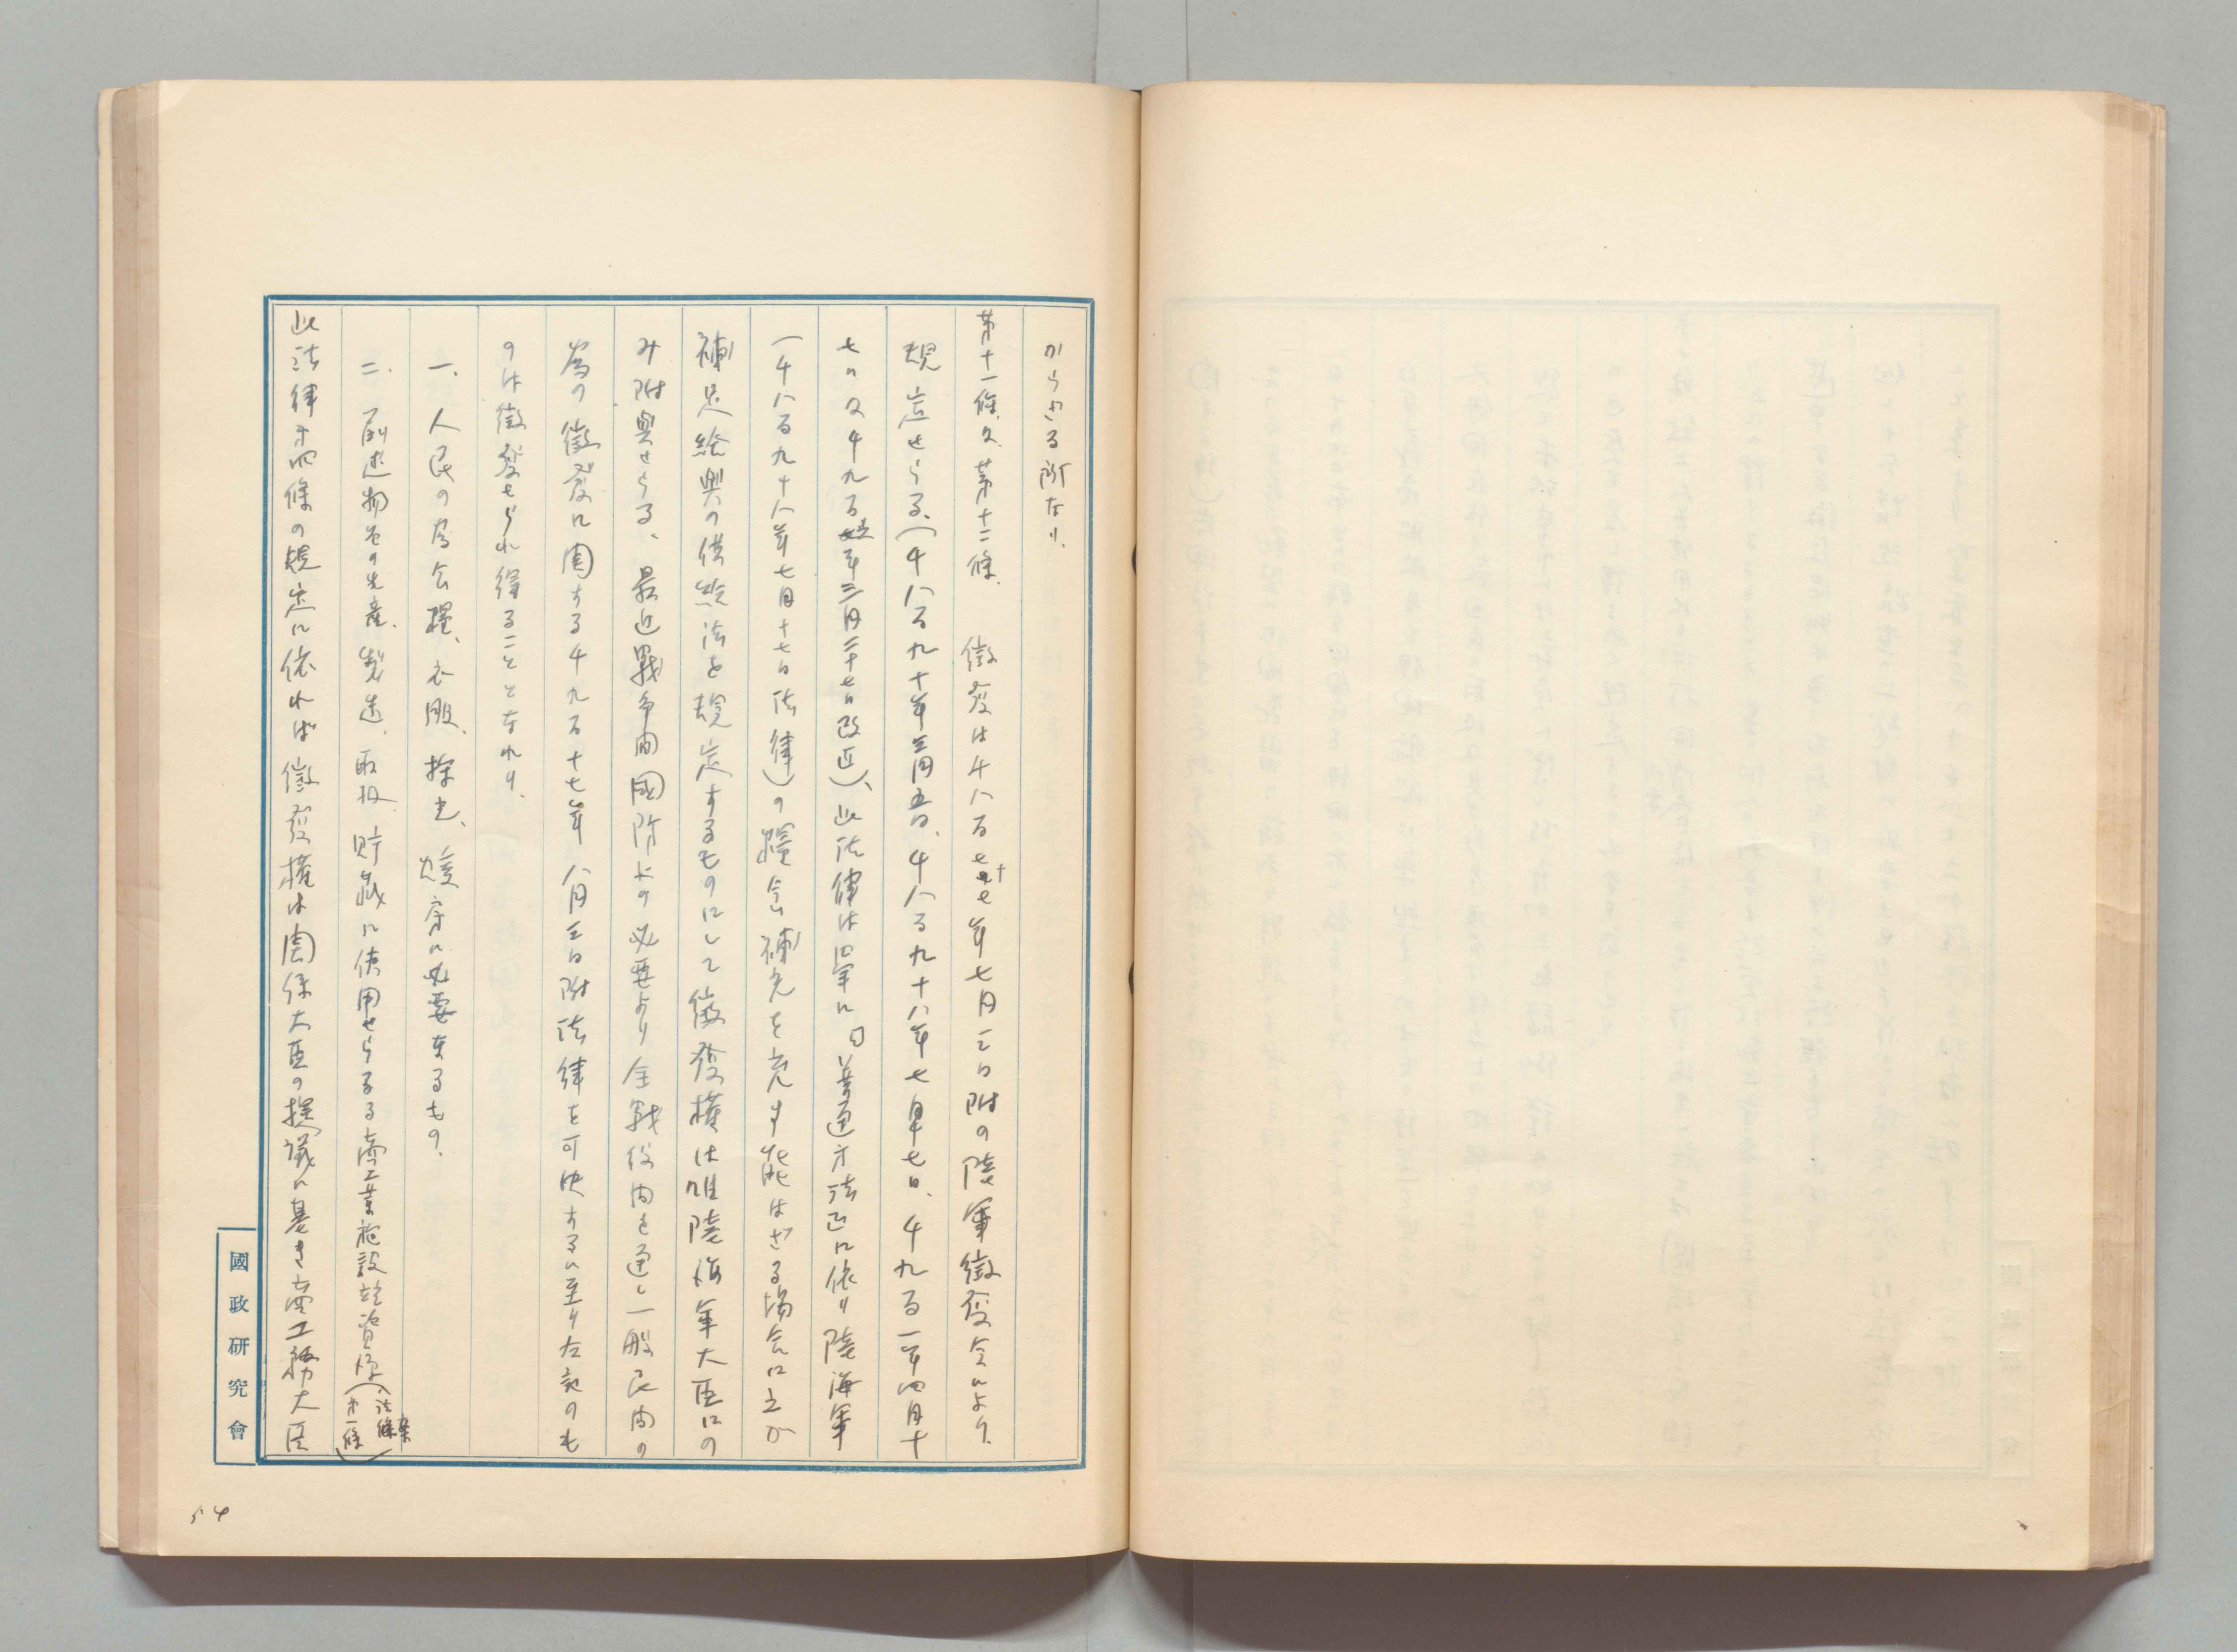 からざる所なり、
第十一條、又、第十二條、　徴發は千八百七十七年七月三日附の陸軍徴發令により、
規定せらる、(千八百九十年三月五日、千八百九十八年七月十七日、千九百一年四月十
七日及千九百年三月二十七日改正)、此法律は單に普通方法に依り陸海軍
(千八百九十八年七月十七日法律)の糧食補充を充す能はざる場合に之が
補足給與の供給法を規定するものにして徴發權は唯陸海軍大臣にの
み附與せらる、最近戰爭間國防上の必要より全戰役間を通し一般民間の
爲の徴發に関する千九百十七年八月三日附法律を可決するに至り左記のも
のは徴發せられ得ることとなれり、
一、人民の爲食糧、衣服、採光、煖房に必要なるもの、
二、前述物品の生産、製造、取扱、貯藏に使用せらるる商工業施設並資源(法律案第一條)
此法律第四條の規定に依れば徴發權は関係大臣の提議に基き商工務大臣
國政研究會
54